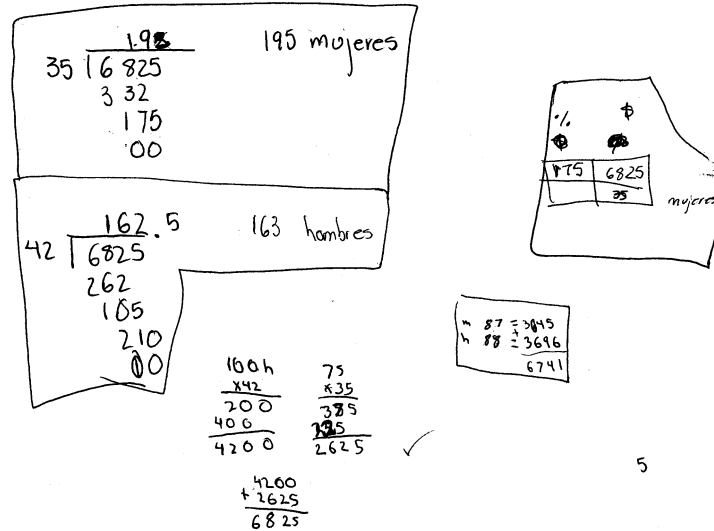 1.98
35 6825
3 32
175
00
195 mujeres
162.5
42 6825
262
105
210
00
163 hombres
% $
175 6825
35
mujeres
m 87 = 3045
+
h 88 = 3696
6741
100h
×42
200
400
4200
75
×35
385
2625
✓
4200
+ 2625
6825
5